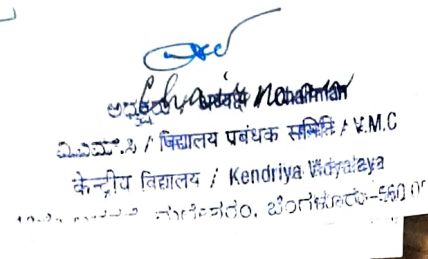 Chairman
ಅಧ್ಯಕ್ಷರು / अध्यक्ष / Chairman
ವಿ.ಎಮ್.ಸಿ / विद्यालय प्रबंधक समिति / V.M.C
केन्द्रीय विद्यालय / Kendriya Vidyalaya
ಬೆಂಗಳೂರು-560 0